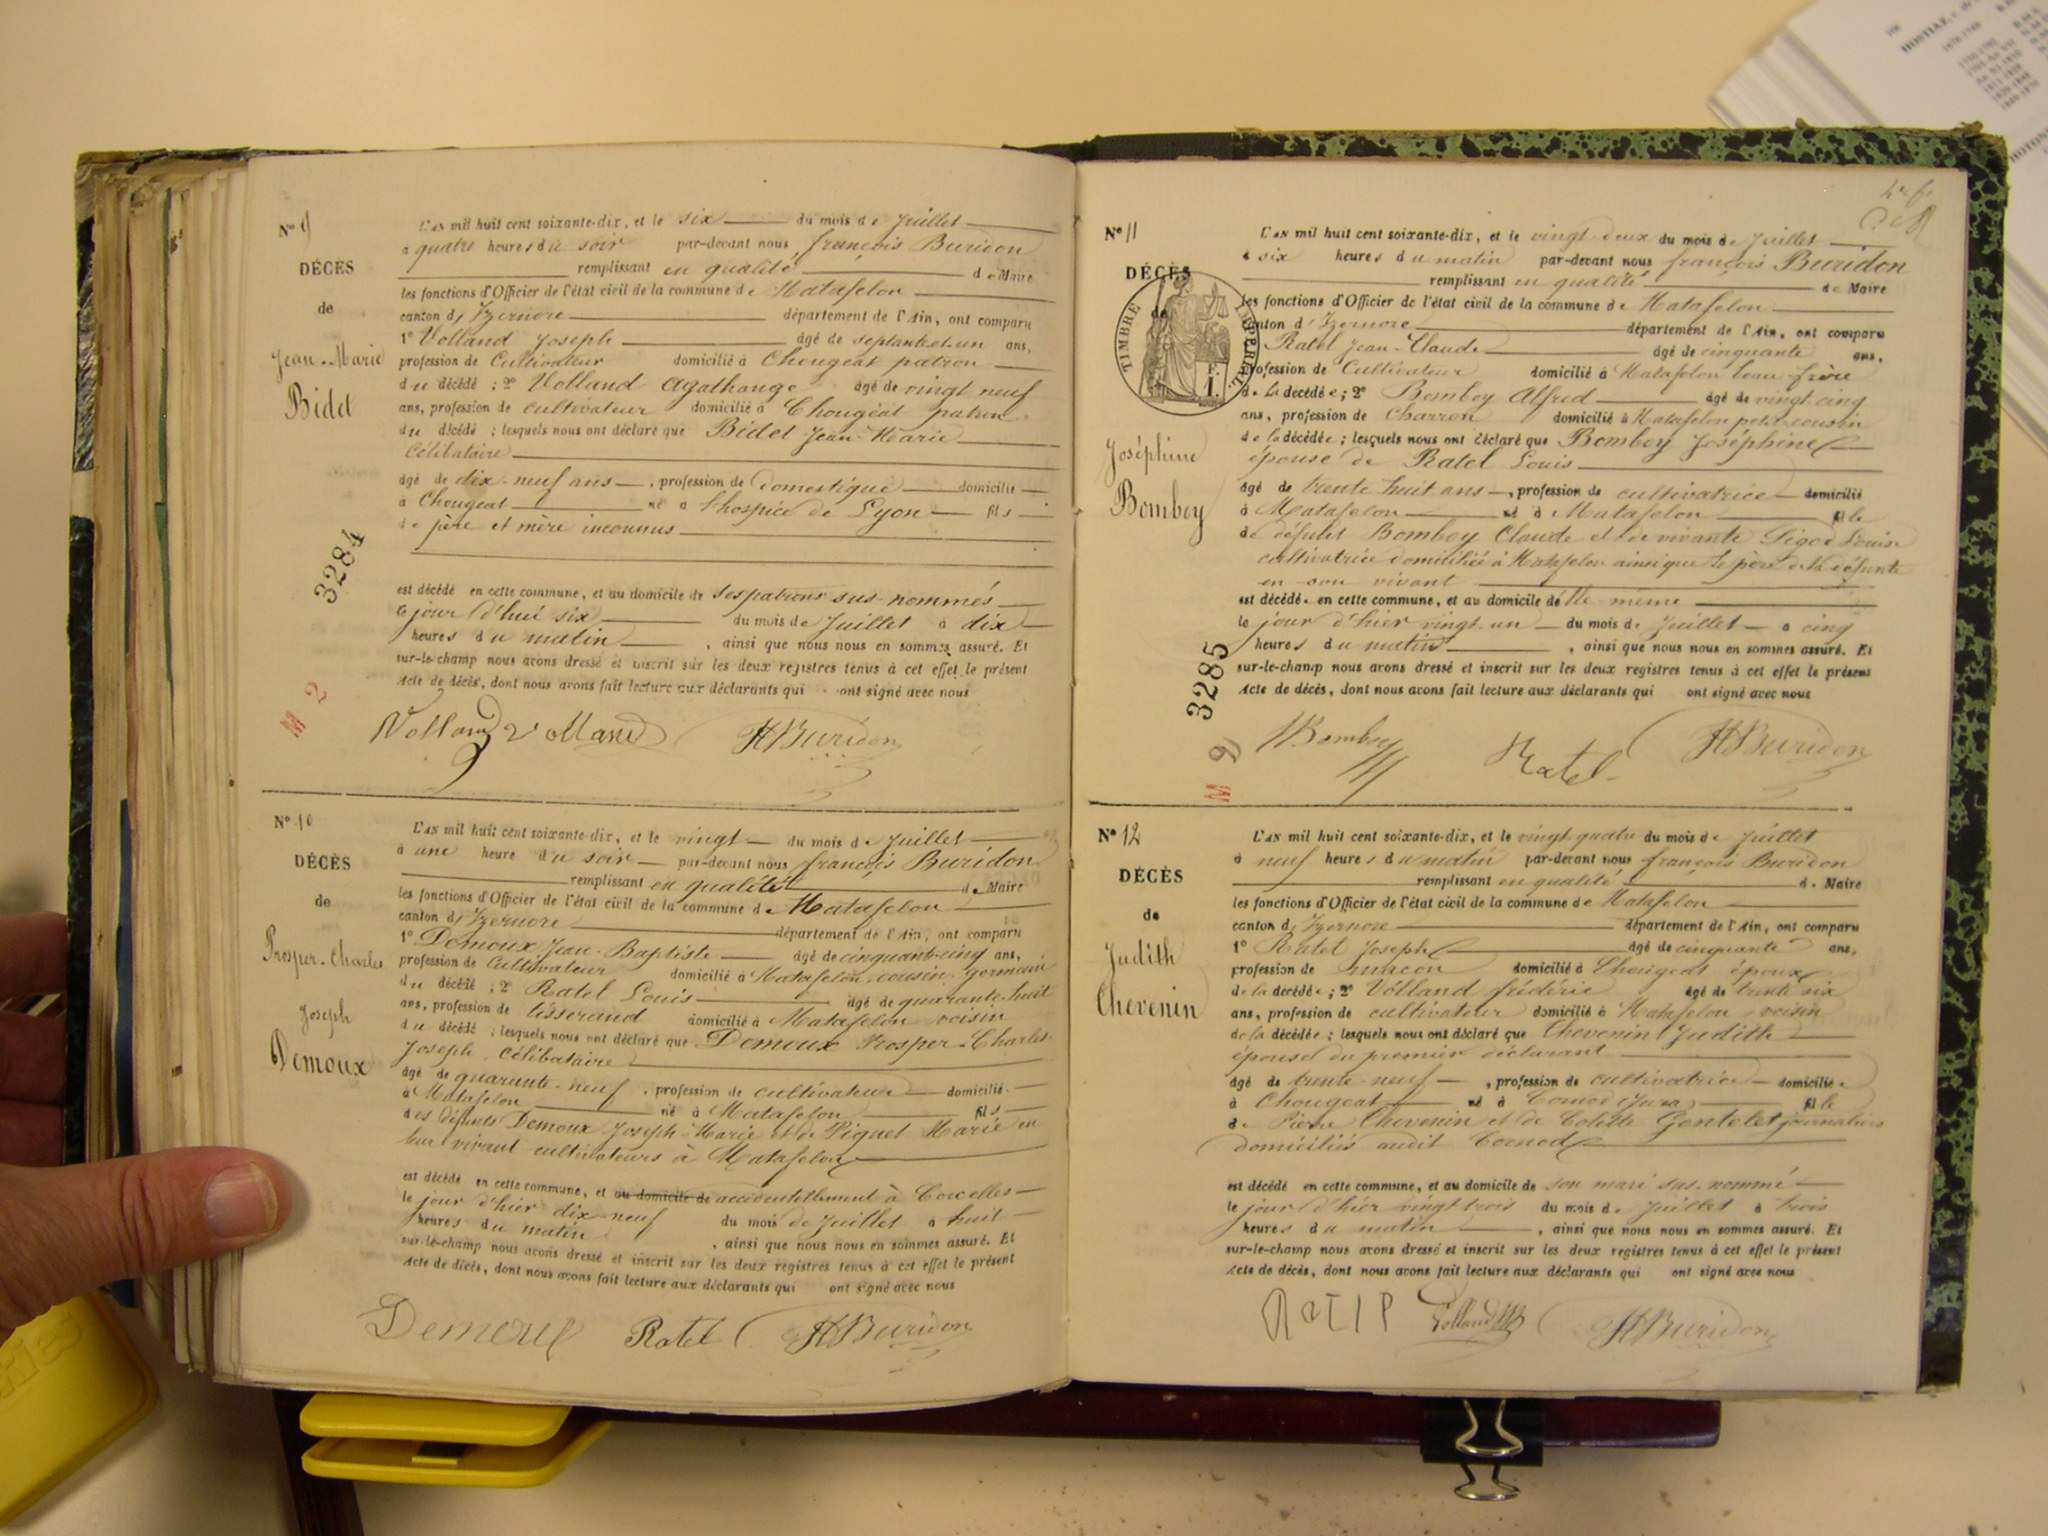 N° 9
DÉCÈS
de
Jean-Marie
Bidet
L'AN mil huit cent soixante-dix, et le six du mois de Juillet
à quatre heures du soir par-devant nous françois Buridon
remplissant en qualité de Maire
les fonctions d'Officier de l'état civil de la commune de Matafelon
canton d'Izernore département de l'Ain, ont comparu
1° Volland Joseph âgé de septante et un ans,
profession de Cultivateur domicilié à Chougeat patron
du décédé ; 2° Volland Agathange âgé de vingt neuf
ans, profession de cultivateur domicilié à Chougeat patron
du décédé ; lesquels nous ont déclaré que Bidet Jean-Marie
Célibataire
âgé de dix-neuf ans, profession de domestique domicilié
à Chougeat né à l'hospice de Lyon fils
de père et mère inconnus
est décédé en cette commune, et au domicile de ses patrons sus-nommés
ce jour d'hui six du mois de Juillet à dix
heures du matin, ainsi que nous nous en sommes assuré. Et
sur-le-champ nous avons dressé et inscrit sur les deux registres tenus à cet effet le présent
Acte de décès, dont nous avons fait lecture aux déclarants qui ont signé avec nous
3284
M 2
Volland Volland Buridon
N° 10
DÉCÈS
de
Prosper-Charles
Joseph
Demoux
L'AN mil huit cent soixante-dix, et le vingt du mois de Juillet
à une heure du soir par-devant nous françois Buridon
remplissant en qualité de Maire
les fonctions d'Officier de l'état civil de la commune de Matafelon
canton d'Izernore département de l'Ain, ont comparu
1° Demoux Jean-Baptiste âgé de cinquant-cinq ans,
profession de Cultivateur domicilié à Matafelon cousin germain
du décédé ; 2° Ratel Louis âgé de quarante-huit
ans, profession de tisserand domicilié à Matafelon voisin
du décédé ; lesquels nous ont déclaré que Demoux Prosper-Charles
Joseph, célibataire
âgé de quarante-neuf, profession de cultivateur domicilié
à Matafelon né à Matafelon fils
des défunts Demoux Joseph-Marie et de Piquet Marie en
leur vivant cultivateurs à Matafelon
est décédé en cette commune, et au domicile de accidentellement à Corcelles
le jour d'hier dix-neuf du mois de Juillet à huit
heures du matin, ainsi que nous nous en sommes assuré. Et
sur-le-champ nous avons dressé et inscrit sur les deux registres tenus à cet effet le présent
Acte de décès, dont nous avons fait lecture aux déclarants qui ont signé avec nous
Demoux Ratel Buridon
N° 11
DÉCÈS
TIMBRE IMPÉRIAL
F. 1.
Joséphine
Bomboy
L'AN mil huit cent soixante-dix, et le vingt-deux du mois de Juillet
à six heures du matin par-devant nous françois Buridon
remplissant en qualité de Maire
les fonctions d'Officier de l'état civil de la commune de Matafelon
canton d'Izernore département de l'Ain, ont comparu
Ratel Jean-Claude âgé de cinquante ans,
profession de Cultivateur domicilié à Matafelon beau-frère
de la décédée ; 2° Bomboy Alfred âgé de vingt-cinq
ans, profession de Charron domicilié à Matafelon petit-cousin
de la décédée ; lesquels nous ont déclaré que Bomboy Joséphine
épouse de Ratel Louis
âgé de trente huit ans, profession de cultivatrice domicilié
à Matafelon né à Matafelon fille
de défunt Bomboy Claude et de vivante Louise
cultivatrice domiciliée à Matafelon ainsi que le père de la défunte
en son vivant
est décédée en cette commune, et au domicile d'elle-même
le jour d'hier vingt-un du mois de Juillet à cinq
heures du matin, ainsi que nous nous en sommes assuré. Et
sur-le-champ nous avons dressé et inscrit sur les deux registres tenus à cet effet le présent
Acte de décès, dont nous avons fait lecture aux déclarants qui ont signé avec nous
3285
M 9
Bomboy Ratel Buridon
N° 12
DÉCÈS
de
Judith
Chevenin
L'AN mil huit cent soixante-dix, et le vingt quatre du mois de Juillet
à neuf heures du matin par-devant nous françois Buridon
remplissant en qualité de Maire
les fonctions d'Officier de l'état civil de la commune de Matafelon
canton d'Izernore département de l'Ain, ont comparu
1° Ratet Joseph âgé de cinquante ans,
profession de maçon domicilié à Chougeat époux
de la décédée ; 2° Volland frédéric âgé de trente six
ans, profession de cultivateur domicilié à Matafelon voisin
de la décédée ; lesquels nous ont déclaré que Chevenin Judith
épouse du premier déclarant
âgé de trente-neuf, profession de cultivatrice domiciliée
à Chougeat né à Cornod (Jura) fille
de Pierre Chevenin et de Colette Gentelet journaliers
domiciliés audit Cornod
est décédé en cette commune, et au domicile de son mari sus-nommé
le jour d'hier vingt trois du mois de Juillet à trois
heures du matin, ainsi que nous nous en sommes assuré. Et
sur-le-champ nous avons dressé et inscrit sur les deux registres tenus à cet effet le présent
Acte de décès, dont nous avons fait lecture aux déclarants qui ont signé avec nous
Volland Buridon